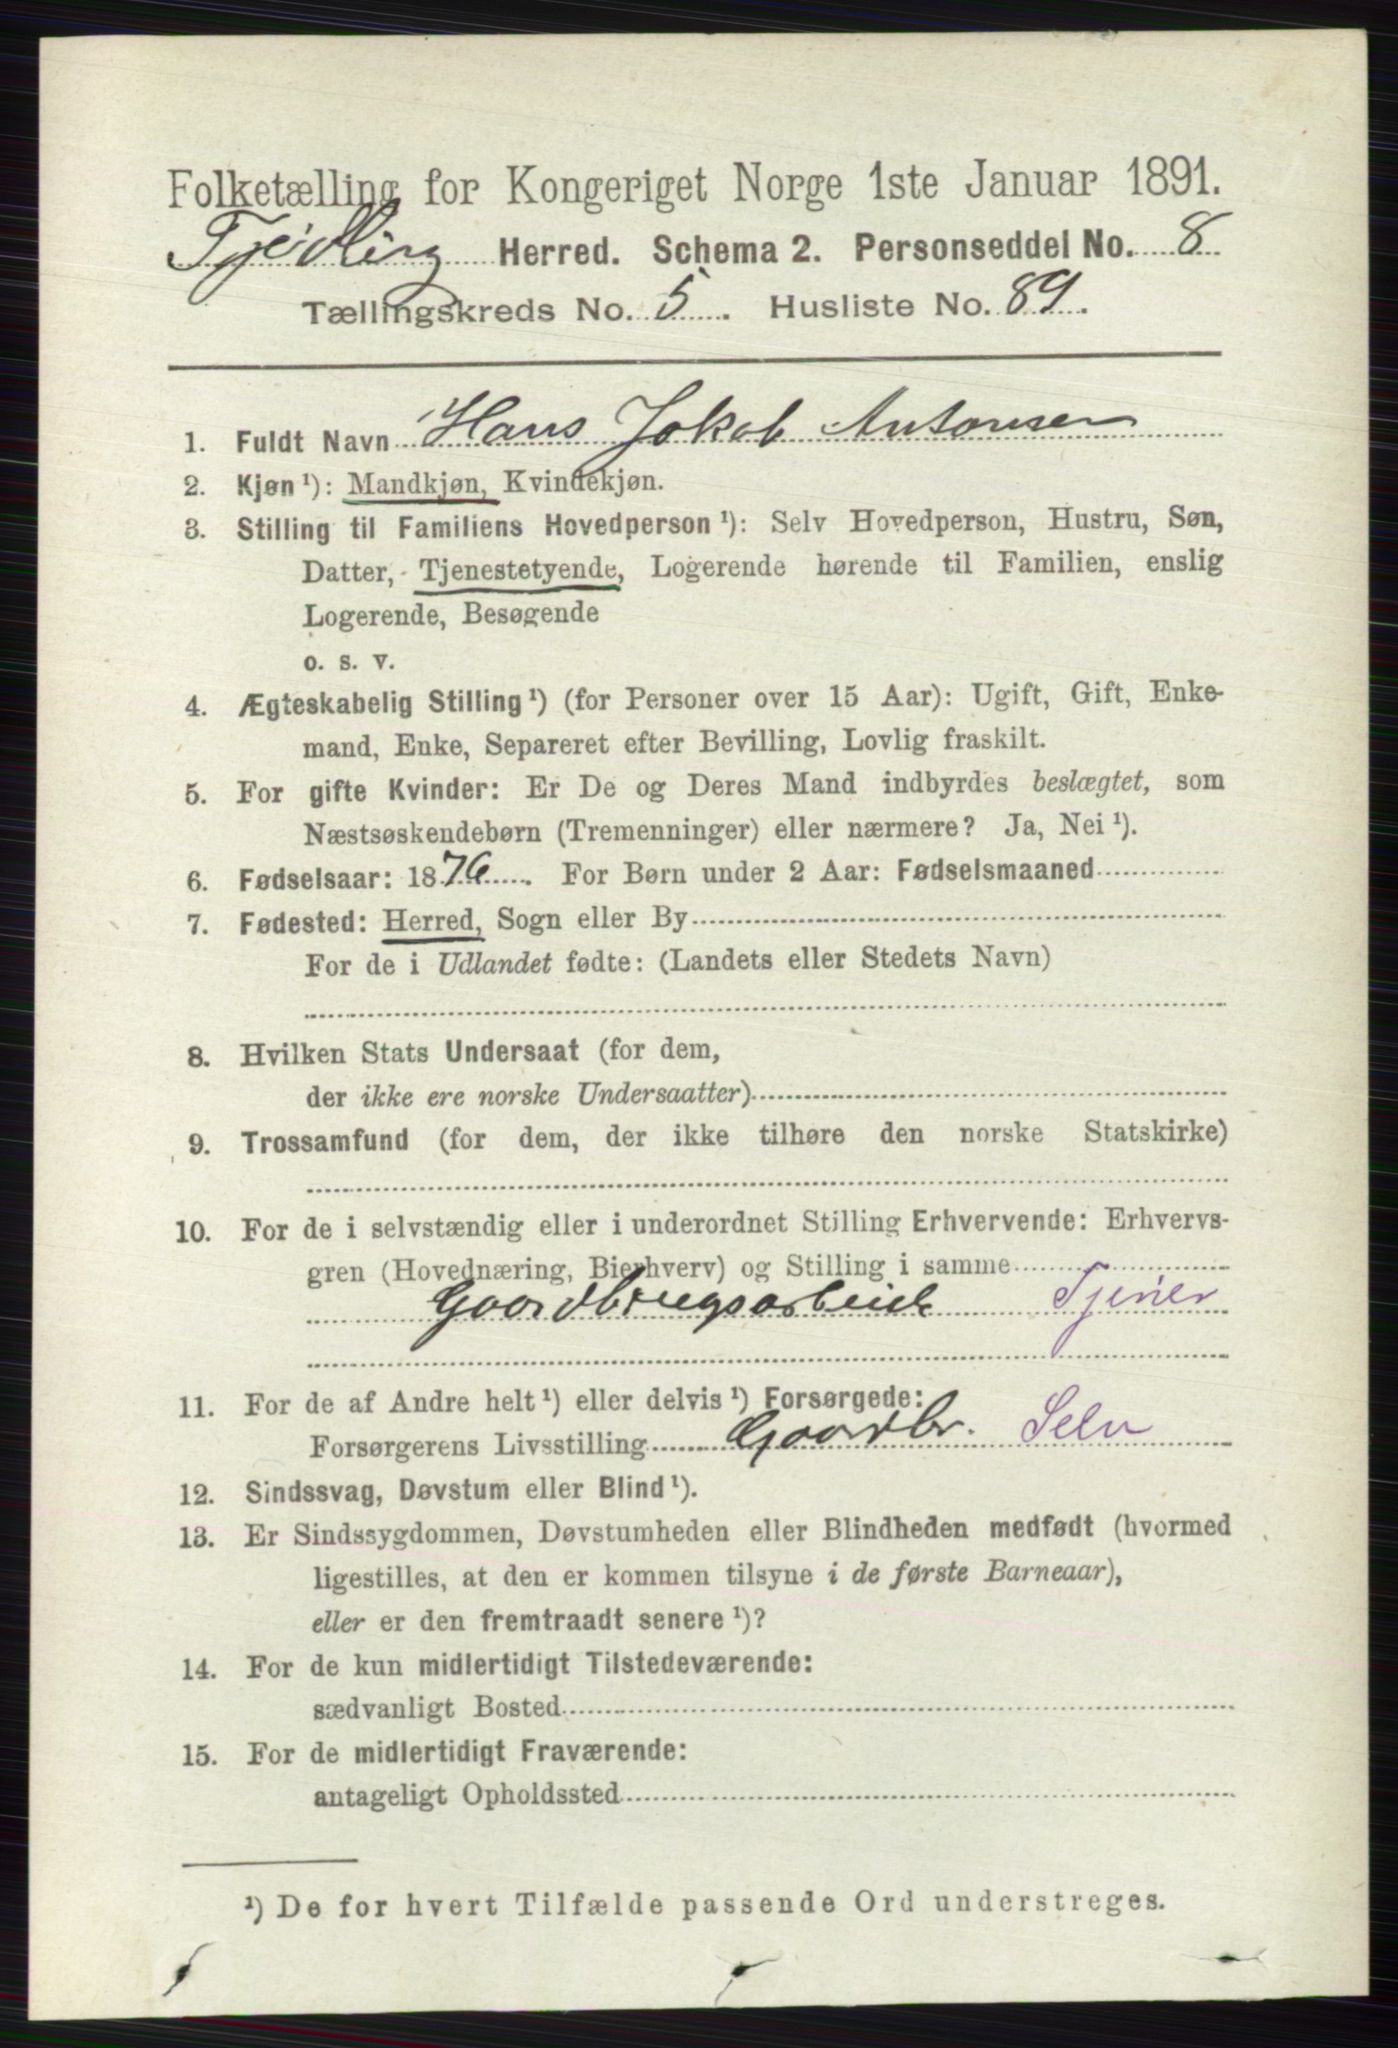 Folketælling for Kongeriget Norge 1ste Januar 1891.
Tjølling Herred. Schema 2. Personseddel No. 8
Tællingskreds No. 5. Husliste No. 89.
1. Fuldt Navn Hans Jakob Antonsen
2. Kjøn ¹): Mandkjøn, Kvindekjøn.
3. Stilling til Familiens Hovedperson ¹): Selv Hovedperson, Hustru, Søn,
Datter, Tjenestetyende, Logerende hørende til Familien, enslig
Logerende, Besøgende
o. s. v.
4. Ægteskabelig Stilling ¹) (for Personer over 15 Aar): Ugift, Gift, Enke-
mand, Enke, Separeret efter Bevilling, Lovlig fraskilt.
5. For gifte Kvinder: Er De og Deres Mand indbyrdes beslægtet, som
Næstsøskendebørn (Tremenninger) eller nærmere? Ja, Nei ¹).
6. Fødselsaar: 1876. For Børn under 2 Aar: Fødselsmaaned
7. Fødested: Herred, Sogn eller By
For de i Udlandet fødte: (Landets eller Stedets Navn)
8. Hvilken Stats Undersaat (for dem,
der ikke ere norske Undersaatter)
9. Trossamfund (for dem, der ikke tilhøre den norske Statskirke)
10. For de i selvstændig eller i underordnet Stilling Erhvervende: Erhvervs-
gren (Hovednæring, Bierhverv) og Stilling i samme
Gaardbrugsarbeide Tjener
11. For de af Andre helt ¹) eller delvis ¹) Forsørgede:
Forsørgerens Livsstilling Gaardbr. Selv
12. Sindssvag, Døvstum eller Blind ¹).
13. Er Sindssygdommen, Døvstumheden eller Blindheden medfødt (hvormed
ligestilles, at den er kommen tilsyne i de første Barneaar),
eller er den fremtraadt senere ¹)?
14. For de kun midlertidigt Tilstedeværende:
sædvanligt Bosted
15. For de midlertidigt Fraværende:
antageligt Opholdssted
¹) De for hvert Tilfælde passende Ord understreges.